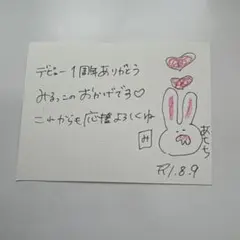 デビュー1周年ありがとう
みるっこのおかげです♡
これからも応援よろしくね
み
R1.8.9